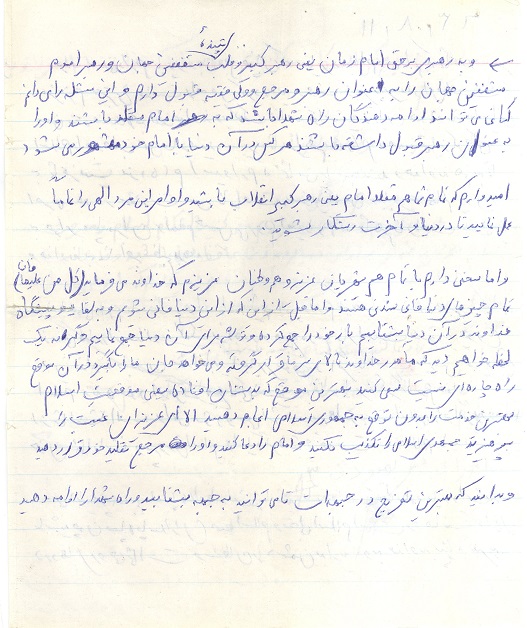 و به رهبری برحق امام زمان یعنی رهبر کبیر و ملت مستضعفین جهان و رهبر امام
مستضعفین جهان را به عنوان رهبر و مرجع و ولی فقیه قبول دارم و این مسئله را می دانم
کسانی می توانند ادامه دهندگان راه شهدا باشند که به امام مقلد باشند و او را
به عنوان رهبر قبول داشته باشند هر کس در آن دنیا با امام خود محشور می شود
امیدوارم که تمام شما هم مقلد امام یعنی رهبر کبیر انقلاب باشید و اوامر این مرد الهی را تماما
عمل نمایید تا در دنیا و آخرت رستگار شوید
و اما سخنی دارم با تمام هم شهریان عزیز و هم وطنان عزیزم که خداوند می فرماید (کل من علیها فان)
تمام چیزهای دنیا فانی شدنی هستند و ما قبل از این که از این دنیا فانی شویم و به لقاء
خداوند در آن دنیا بشتابیم با خود راجع کرده و توشه برای آن دنیا جمع نماییم وگرنه یک
لحظه خواهیم دید که مأمور خداوند بالای سر ما قرار گرفته و می خواهد جان ما را بگیرد و در آن موقع
راه چاره ای نیست سعی کنید بهترین موقع که بدستتان افتاده یعنی موقعیت اسلام
بهترین خدمت را بدون توقع به جمهوری اسلامی انجام دهید الا ای عزیزان غیبت را
بپرهیزید جمهوری اسلامی را تکذیب نکنید و امام را دعا کنید و او را مرجع تقلید خود قرار دهید
و بدانید که بهترین تفریح در جبهه است تا می توانید به جبهه بشتابید و راه شهدا را ادامه دهید